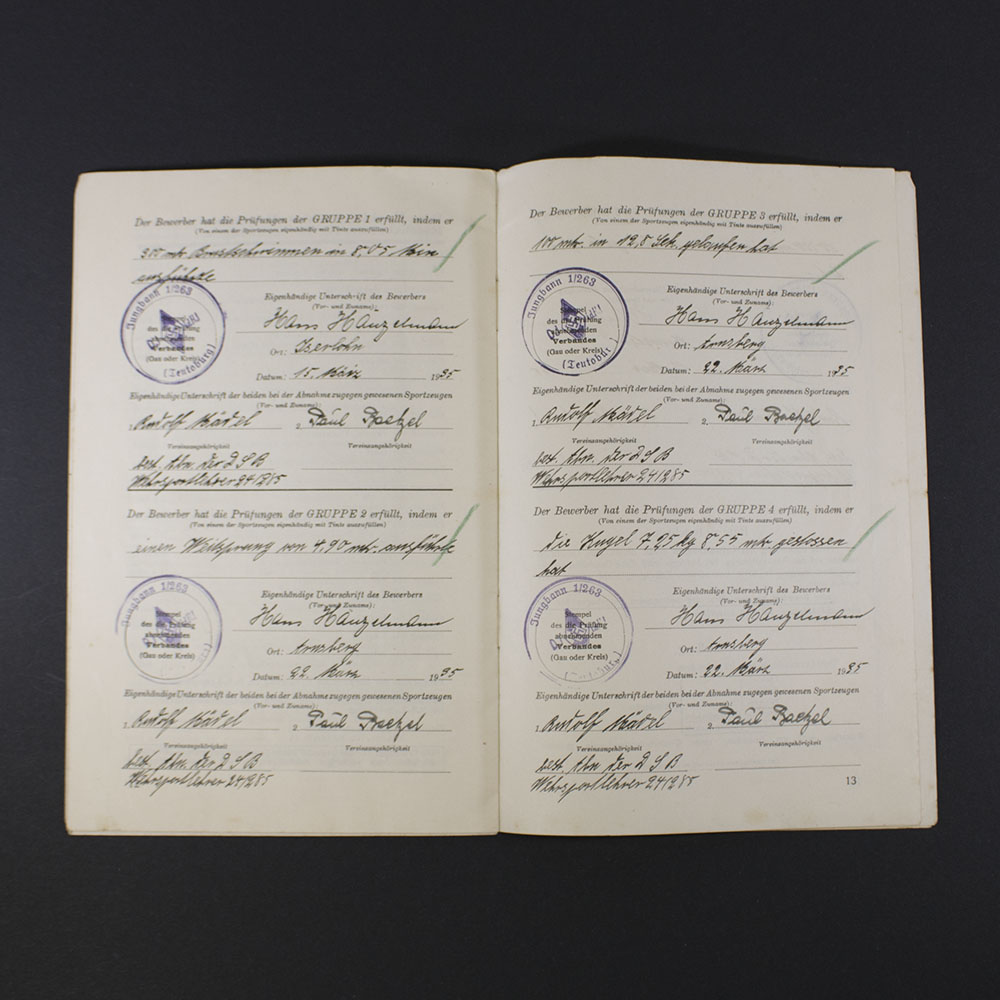 Der Bewerber hat die Prüfungen der GRUPPE 1 erfüllt, indem er
(Von einem der Sportzeugen eigenhändig mit Tinte auszufüllen)
300 mtr. Brustschwimmen in 8,05 Min
ausführte
Jungbann 1/263
des die Prüfung
Verbandes
(Gau oder Kreis)
(Teutoburg)
Eigenhändige Unterschrift des Bewerbers
(Vor- und Zuname):
Hans Hänzelmann
Ort: Iserlohn
Datum: 15. März 1935
Eigenhändige Unterschrift der beiden bei der Abnahme zugegen gewesenen Sportzeugen
(Vor- und Zuname):
1. Rudolf 2. Paul
Vereinsangehörigkeit Vereinsangehörigkeit
best. Abn. der D S B
Wehrsportlehrer
Der Bewerber hat die Prüfungen der GRUPPE 2 erfüllt, indem er
(Von einem der Sportzeugen eigenhändig mit Tinte auszufüllen)
einen Weitsprung von 4,90 mtr. ausführte
Jungbann 1/263
Stempel
des die Prüfung
abnehmenden
Verbandes
(Gau oder Kreis)
Eigenhändige Unterschrift des Bewerbers
(Vor- und Zuname):
Hans Hänzelmann
Ort: Arnsberg
Datum: 22. März 1935
Eigenhändige Unterschrift der beiden bei der Abnahme zugegen gewesenen Sportzeugen
(Vor- und Zuname):
1. Rudolf 2. Paul
Vereinsangehörigkeit Vereinsangehörigkeit
best. Abn. der D S B
Wehrsportlehrer 24/285
Der Bewerber hat die Prüfungen der GRUPPE 3 erfüllt, indem er
(Von einem der Sportzeugen eigenhändig mit Tinte auszufüllen)
100 mtr. in 12,8 Sek. gelaufen hat
Jungbann 1/263
Stempel
des die Prüfung
abnehmenden
Verbandes
(Gau oder Kreis)
(Teutobur.)
Eigenhändige Unterschrift des Bewerbers
(Vor- und Zuname):
Hans Hänzelmann
Ort: Arnsberg
Datum: 22. März 1935
Eigenhändige Unterschrift der beiden bei der Abnahme zugegen gewesenen Sportzeugen
(Vor- und Zuname):
1. Rudolf 2. Paul
Vereinsangehörigkeit Vereinsangehörigkeit
best. Abn. der D S B
Wehrsportlehrer 24/285
Der Bewerber hat die Prüfungen der GRUPPE 4 erfüllt, indem er
(Von einem der Sportzeugen eigenhändig mit Tinte auszufüllen)
die Kugel 7,25 kg 8,55 mtr gestossen
hat
Jungbann 1/263
Stempel
des die Prüfung
abnehmenden
Verbandes
(Gau oder Kreis)
Eigenhändige Unterschrift des Bewerbers
(Vor- und Zuname):
Hans Hänzelmann
Ort: Arnsberg
Datum: 22. März 1935
Eigenhändige Unterschrift der beiden bei der Abnahme zugegen gewesenen Sportzeugen
(Vor- und Zuname):
1. Rudolf 2. Paul
Vereinsangehörigkeit Vereinsangehörigkeit
best. Abn. der D S B
Wehrsportlehrer 24/285
13